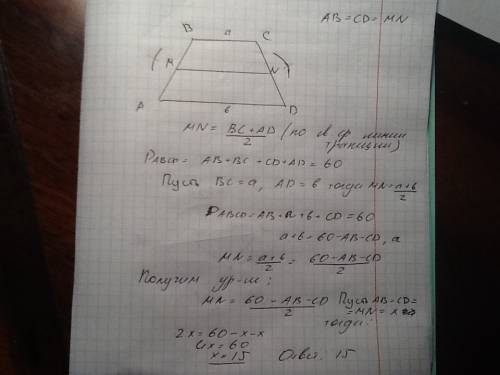 AB = CD = MN
B a C
M N
A b D
MN = BC + AD / 2 (по св. ср. линии
трапеции)
PABCD = AB + BC + CD + AD = 60
Пусть BC = a, AD = b тогда MN = a+b / 2
PABCD = AB + a + b + CD = 60
a + b = 60 - AB - CD, a
MN = a+b / 2 = 60 - AB - CD / 2
Получим ур-ие:
MN = 60 - AB - CD / 2 Пусть AB = CD =
= MN = x
тогда:
2x = 60 - x - x
4x = 60
x = 15 Ответ: 15